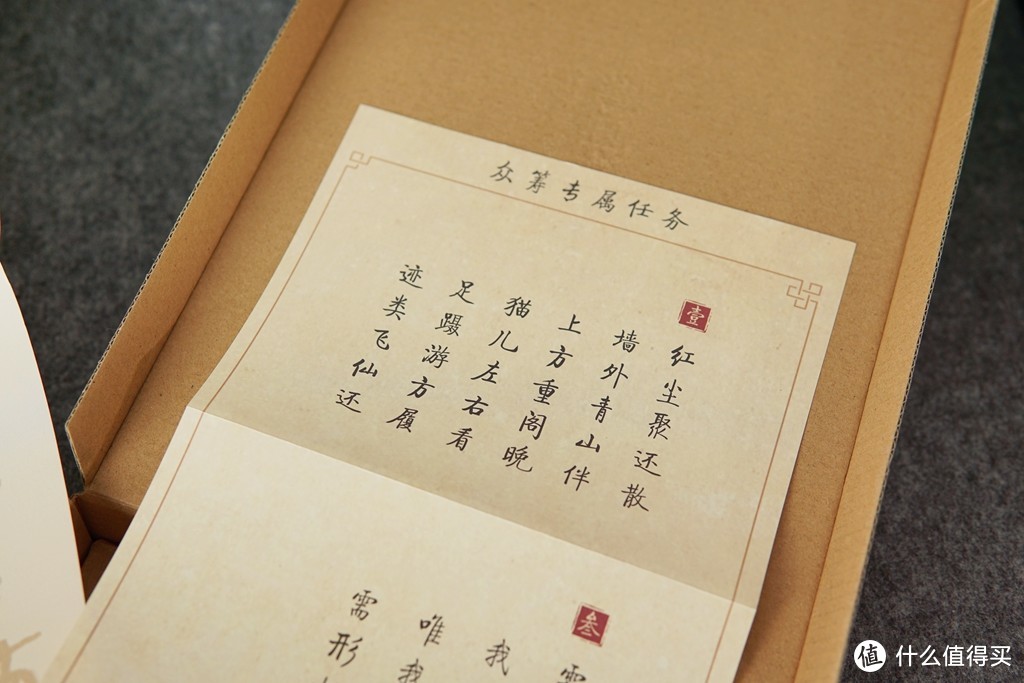 众筹专属任务
壹
红尘聚还散
墙外青山伴
上方重阁晚
猫儿左右看
足蹑游方履
迹类飞仙还
叁
我
唯我
需形
值 什么值得买